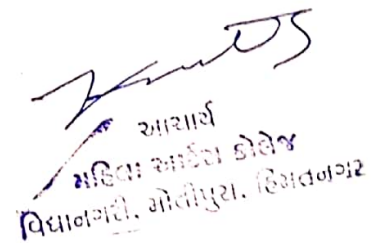 આચાર્ય
મહિલા આર્ટસ કોલેજ
વિદ્યાનગરી, મોતીપુરા, હિંમતનગર